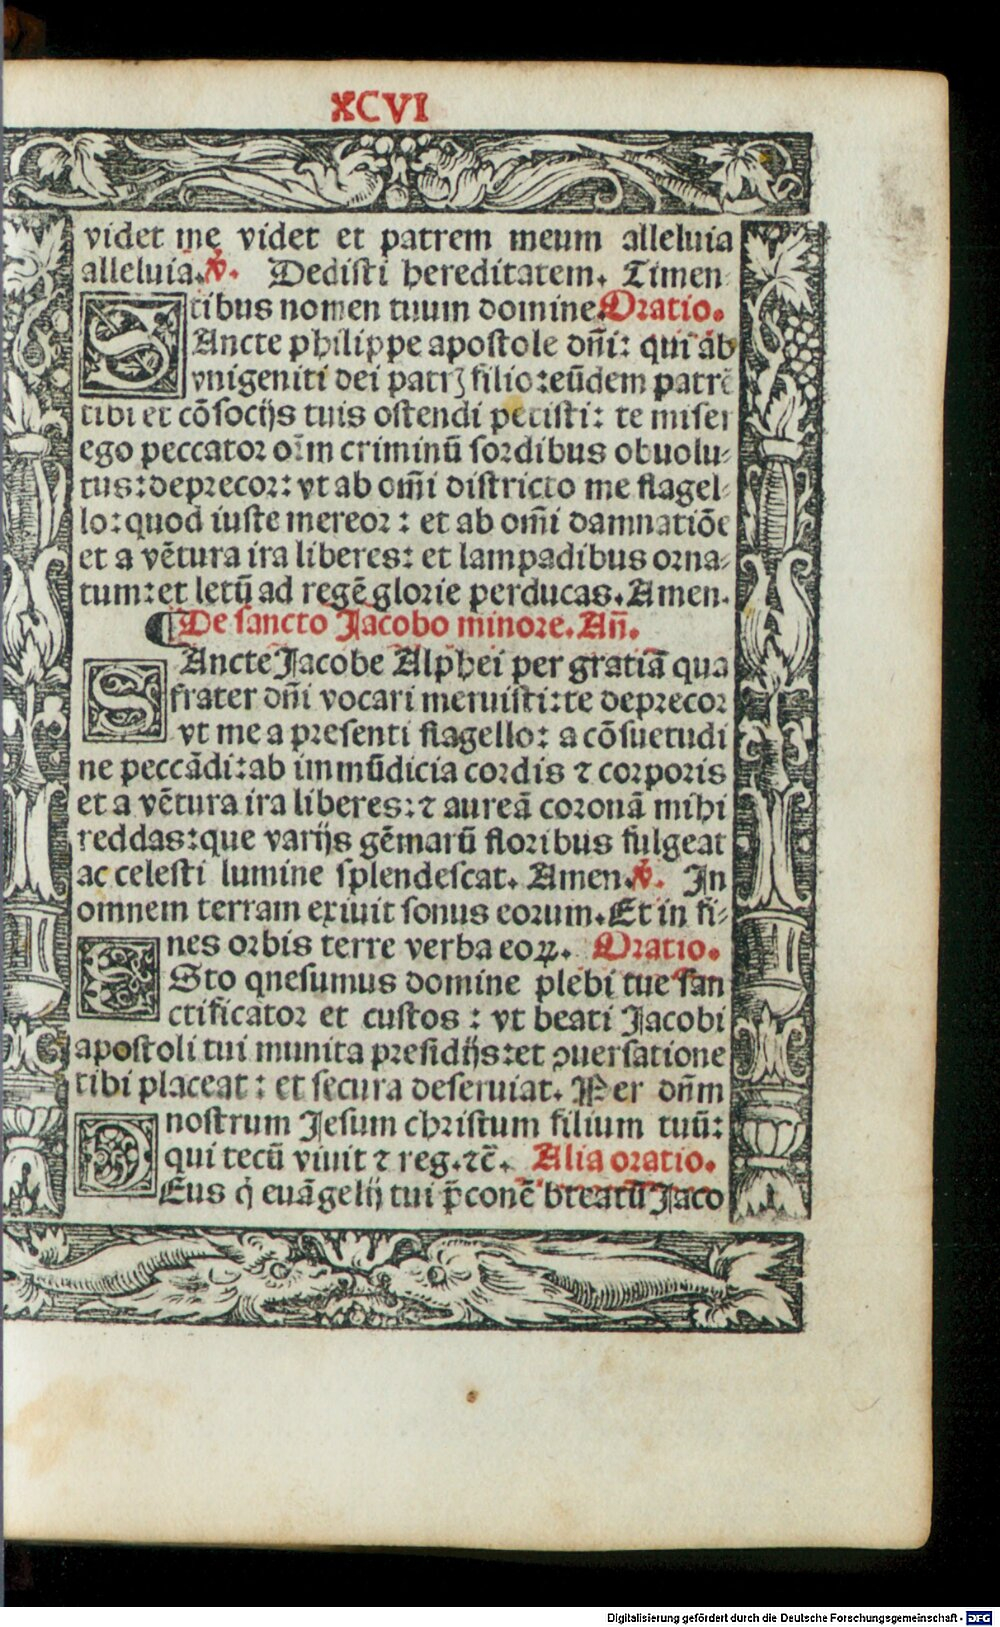 XCVI
videt me videt et patrem meum alleluia
alleluia. ℣. Dedisti hereditatem. Timen⸗
tibus nomen tuum domine. Oratio.
SAncte philippe apostole dñi: qui ab
vnigeniti dei patrꝭ filio: eūdem patrē
tibi et cōsocijs tuis ostendi petisti: te miser
ego peccator oīm criminū sordibus obuolu⸗
tus: deprecor: vt ab om̄i districto me flagel⸗
lo: quod iuste mereor: et ab om̄i damnatiōe
et a vētura ira liberes: et lampadibus orna⸗
tum: et letū ad regē glorie perducas. Amen.
¶ De sancto Jacobo minore. Añ.
SAncte Jacobe Alphei per gratiā qua
frater dñi vocari meruisti: te deprecor
vt me a presenti flagello: a cōsuetudi
ne peccādi: ab immūdicia cordis ⁊ corporis
et a vētura ira liberes: ⁊ aureā coronā mihi
reddas: que varijs gēmarū floribus fulgeat
ac celesti lumine splendescat. Amen. ℣. In
omnem terram exiuit sonus eorum. Et in fi⸗
nes orbis terre verba eoꝝ. Oratio.
ESto qnesumus domine plebi tue san
ctificator et custos: vt beati Jacobi
apostoli tui munita presidijs: et ↄuersatione
tibi placeat: et secura deseruiat. Per dñm
nostrum Jesum christum filium tuū:
qui tecū viuit ⁊ reg. ⁊c̄. Alia oratio.
DEus q̇ euāgelij tui p̄conē breatū Jaco
Digitalisierung gefördert durch die Deutsche Forschungsgemeinschaft - DFG